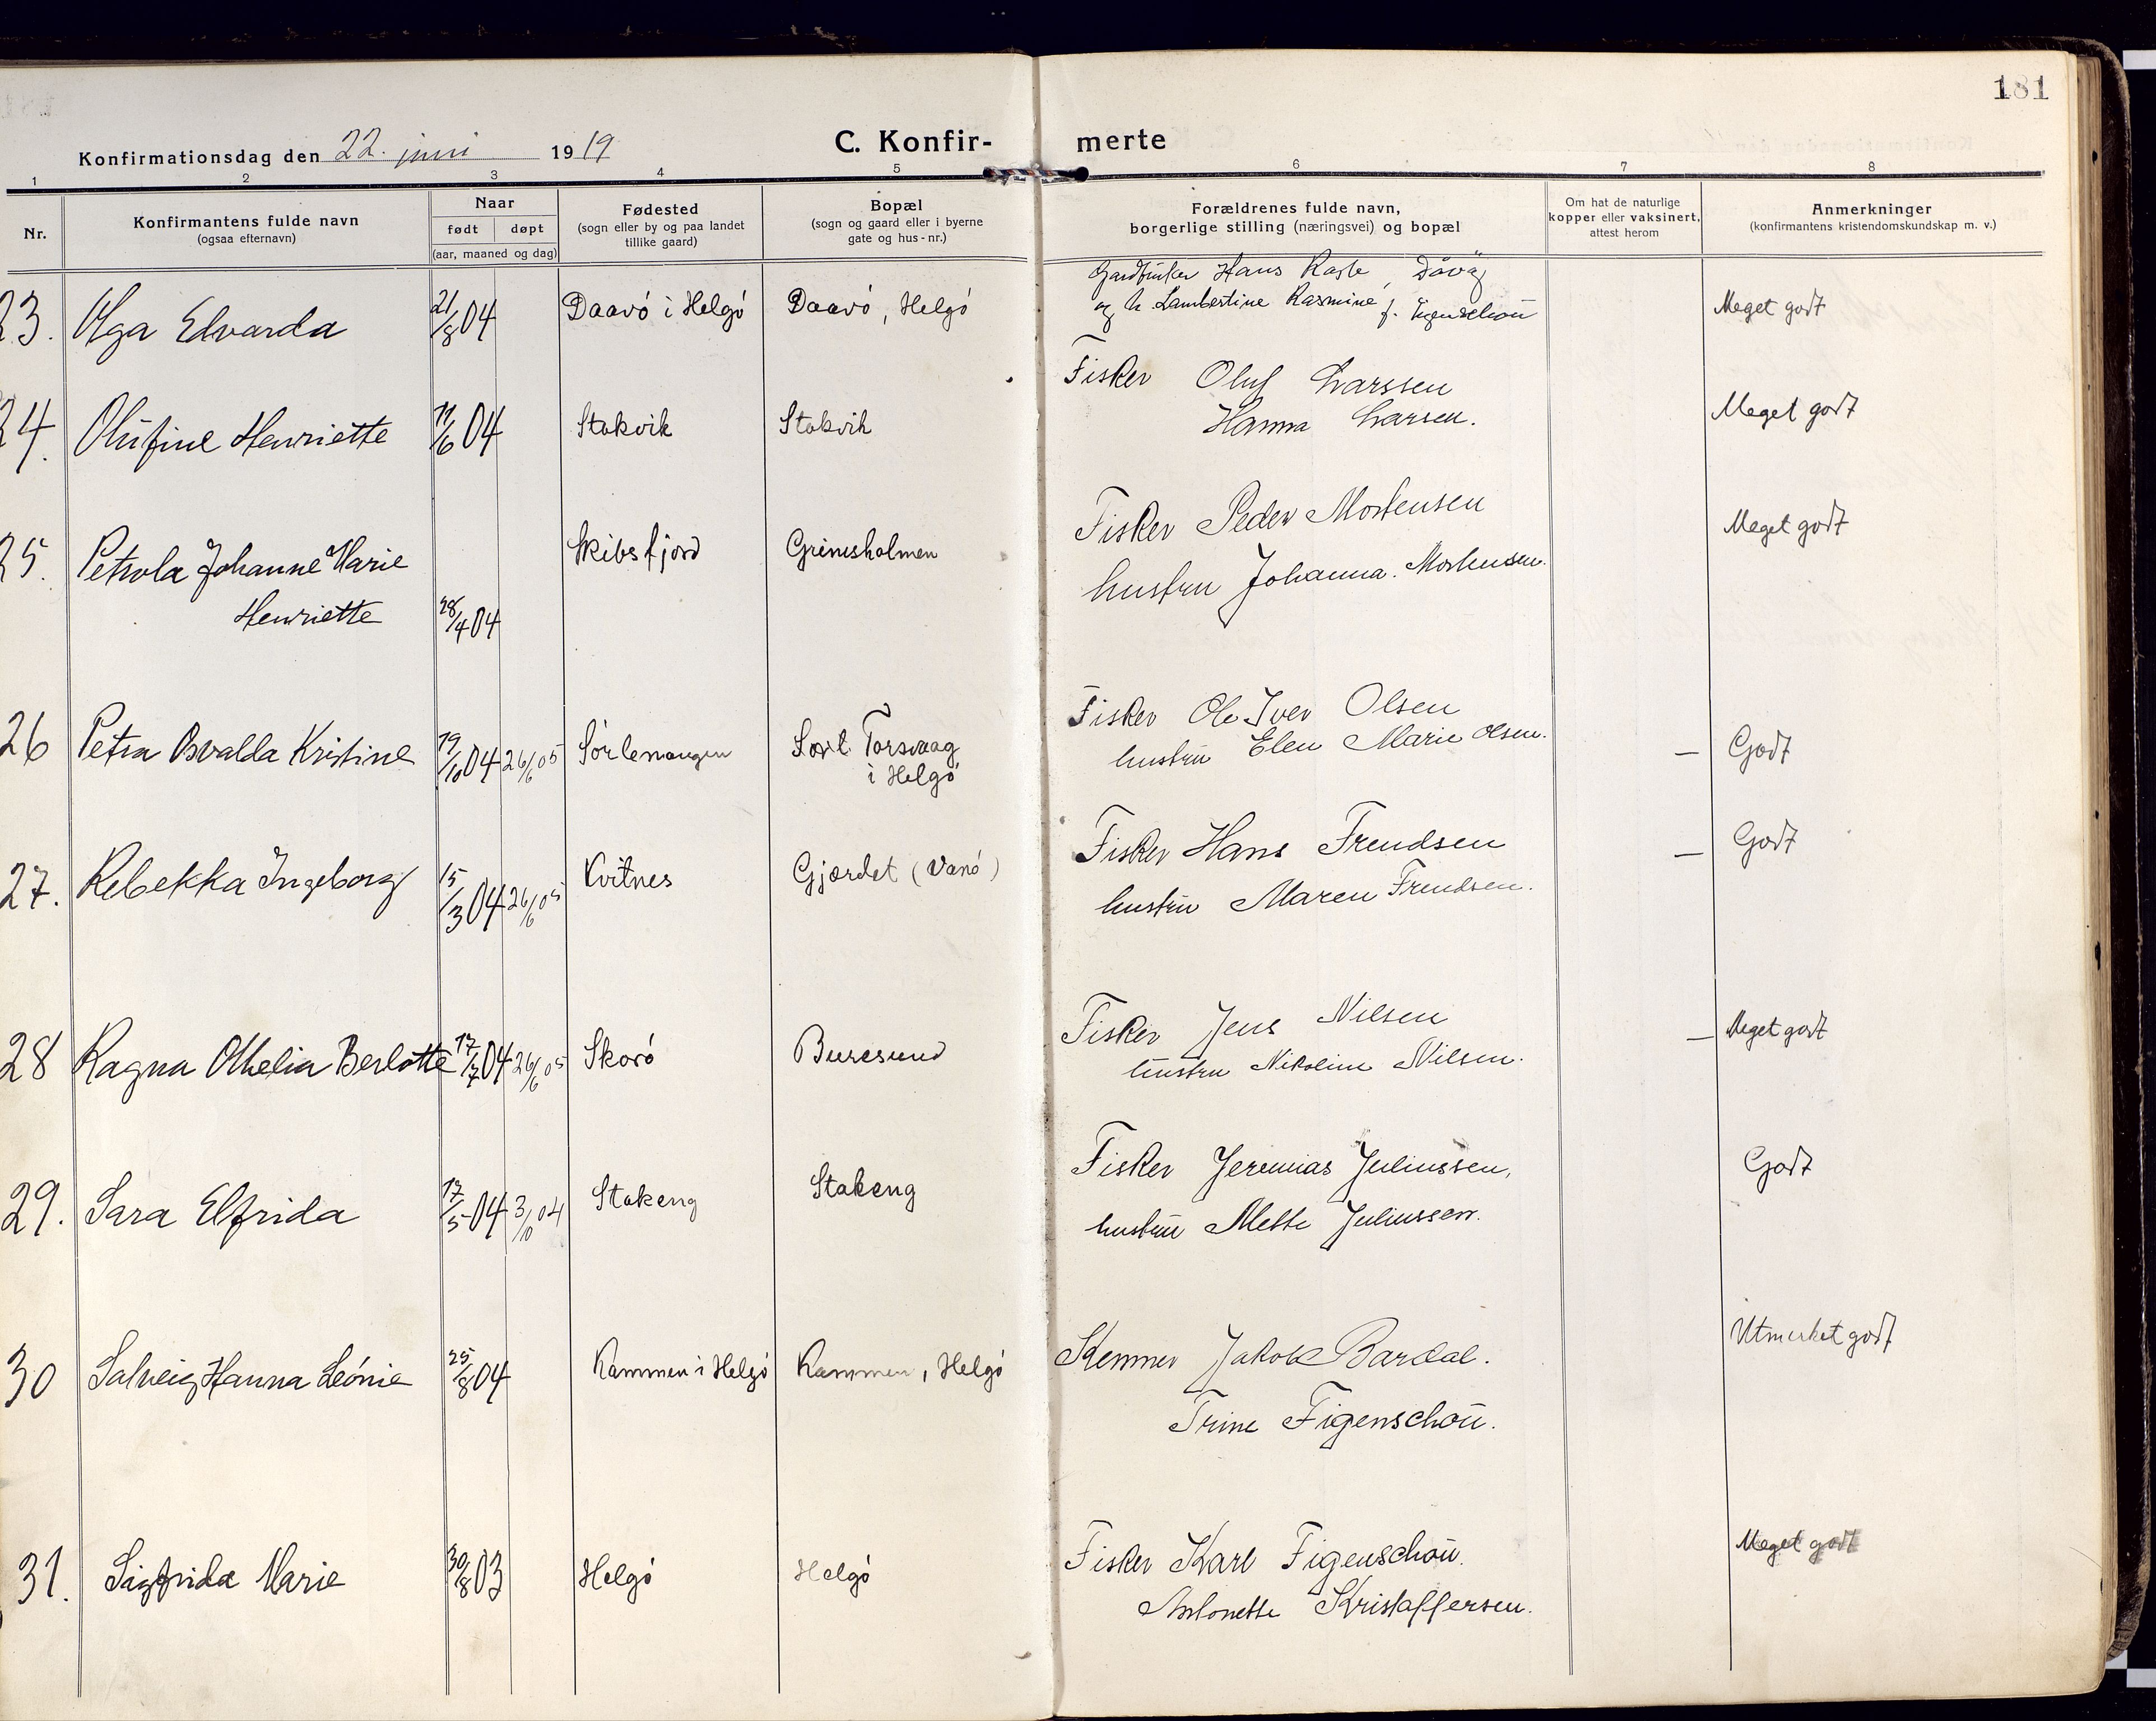 181
Konfirmationsdag den 22. juni 1919
C. Konfir- merte
1 2 3 4 5 6 7 8
Nr.
Konfirmantens fulde navn
(ogsaa efternavn)
Naar
født døpt
(aar, maaned og dag)
Fødested
(sogn eller by og paa landet
tillike gaard)
Bopæl
(sogn og gaard eller i byerne
gate og hus-nr.)
Forældrenes fulde navn,
borgerlige stilling (næringsvei) og bopæl
Om hat de naturlige
kopper eller vaksinert,
attest herom
Anmerkninger
(konfirmantens kristendomskundskap m. v.)
23. Olga Edvarda 21/8 04 Daavó i Helgó Daavó, Helgó
Hans
og h. Lambertine Rasmine f. Figenschou
Meget godt
24. Olufine Henriette 11/6 04 Stakvik Stakvik
Fisker Oluf Larssen
Hanna Larsen.
Meget godt
25. Petrola Johanne Marie
Henriette 28/4 04
Skibsfjord Grimsholmen
Fisker Peder Mortensen
hustru Johanna Mortensen.
Meget godt
26 Petra Osvalda Kristine 19/10 04 26/6 05 Sórlenangen Torsvaag
i Helgó
Fisker Ole Iver Olsen
hustru Elen Marie Olsen.
— Godt
27. Rebekka Ingeborg 15/3 04 26/6 05 Kvitnes Gjærdet (Vanó)
Fisker Hans Frendsen
hustru Maren Frendsen.
— Godt
28 Ragna Othelia Berlotte 17/7 04 26/6 05 Skoró Buresund
Fisker Jens Nilsen
hustru Nikoline Nilsen.
— Meget godt
29. Sara Elfrida 17/5 04 3/10 04 Stakeng Stakeng
Fisker Jeremias Juliussen,
hustru Mette Juliussen.
Godt
30 Solveig Hanna Leónie 25/8 04 Kammen i Helgó Kammen, Helgó
Kemner Jakob Bardal.
Trine Figenschou.
Utmerket godt
31. Sigfrida Marie 30/8 03 Helgó Helgó
Fisker Karl Figenschou.
Antonette Kristoffersen.
Meget godt